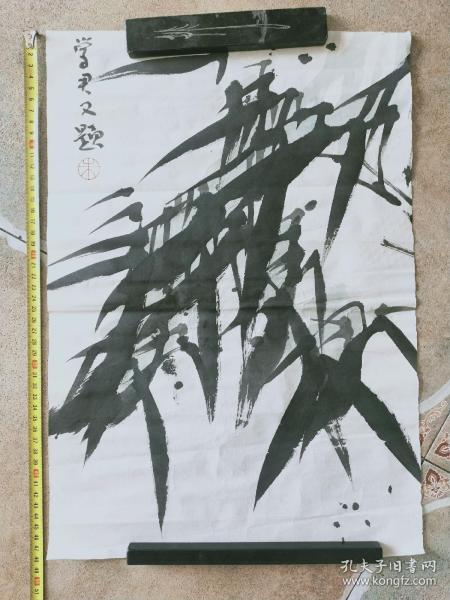 学君又题
朱
孔夫子旧书网
www.kongfz.com